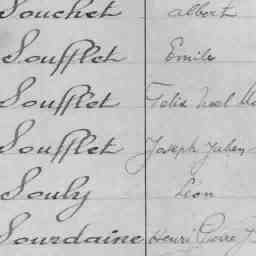 Souchet Albert
Soufflet Emile
Soufflet Félix Noel
Soufflet Joseph Julien
Souly Léon
Sourdaine Henri